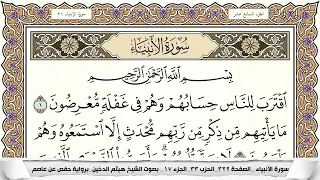 الجزء السابع عشر
سورة الأنبياء ٢١
سُورَةُ الْأَنبِيَاءِ
بِسْمِ اللَّهِ الرَّحْمَٰنِ الرَّحِيمِ
اقْتَرَبَ لِلنَّاسِ حِسَابُهُمْ وَهُمْ فِي غَفْلَةٍ مُّعْرِضُونَ ١
مَا يَأْتِيهِم مِّن ذِكْرٍ مِّن رَّبِّهِم مُّحْدَثٍ إِلَّا اسْتَمَعُوهُ وَهُمْ
سورة الأنبياء الصفحة ٣٢٢ الحزب ٣٣ الجزء ١٧ بصوت الشيخ هيثم الدخين برواية حفص عن عاصم